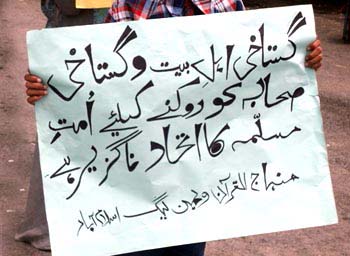 گستاخی اہلِ بیت و گستاخی
صحابہ کو روکنے کیلئے اُمتِ
مسلّمہ کا اتحاد ناگزیر ہے
منہاج القرآن ویمن لیگ اسلام آباد